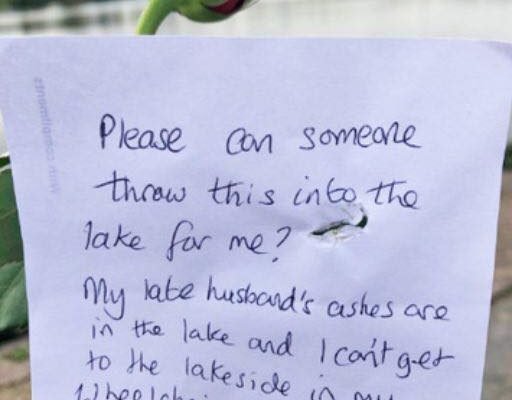 with compliments
Please can someone
throw this into the
lake for me?
My late husband's ashes are
in the lake and I can't get
to the lakeside in my